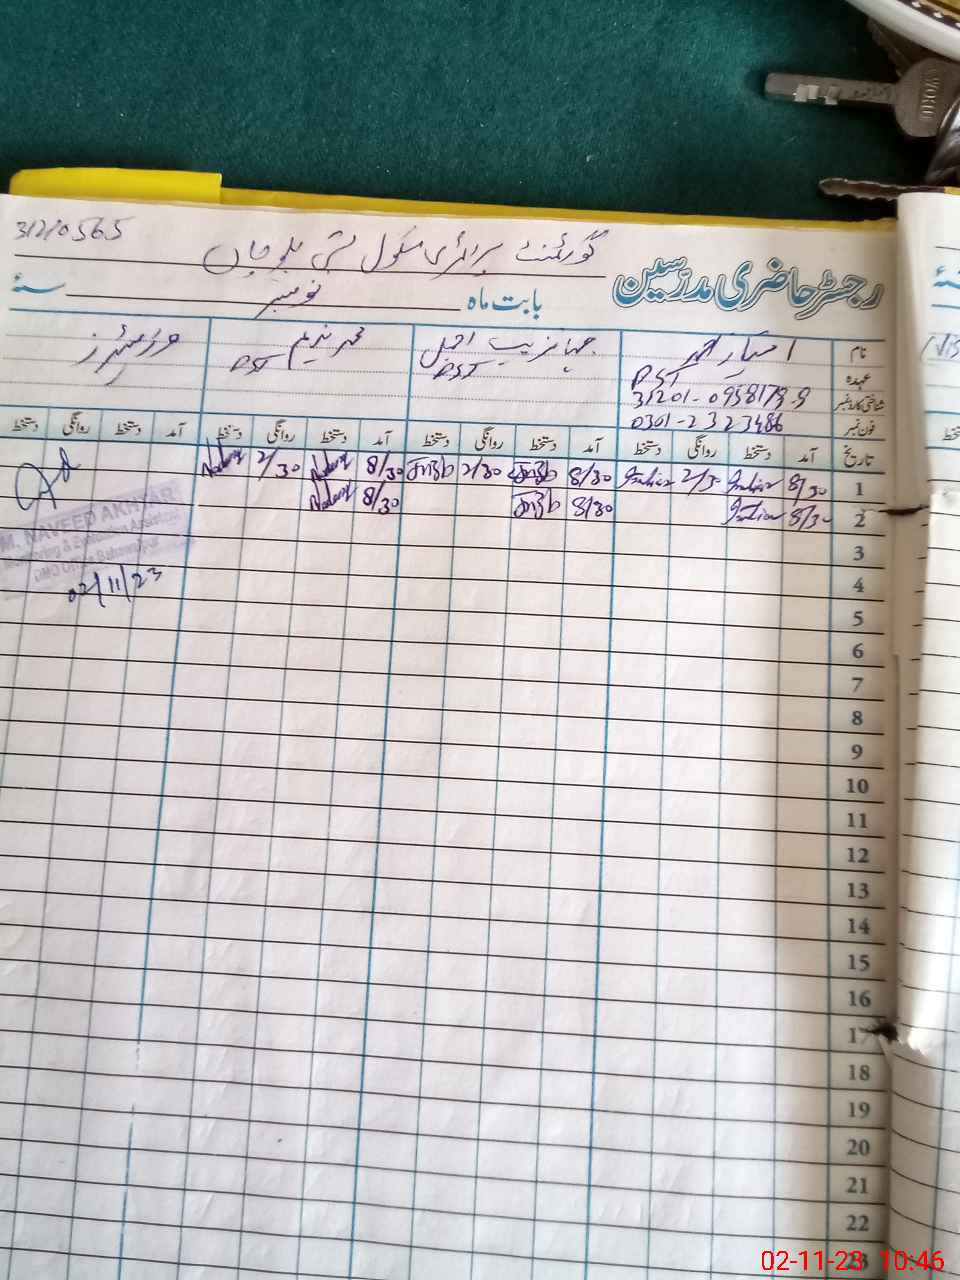 31210565
گورنمنٹ پرائمری سکول بستی بلوچاں
رجسٹر حاضری مدرسین
بابت ماہ نومبر سنۂ
نام
محمد ندیم
عہدہ PST PST PST
شناختی کارڈ نمبر 31201-0958173-9
فون نمبر 0301-2323486
تاریخ آمد دستخط روانگی دستخط آمد دستخط روانگی دستخط آمد دستخط روانگی دستخط آمد دستخط روانگی دستخط
1 8/30 2/30 8/30 2/30 8/30 2/30
2 8/30 8/30 8/30
M. NAVEED AKHTAR
Monitoring & Evaluation Assistant
DMO Office Bahawalpur
02/11/23
3
4
5
6
7
8
9
10
11
12
13
14
15
16
17
18
19
20
21
22
23
WORLD
02-11-23 10:46